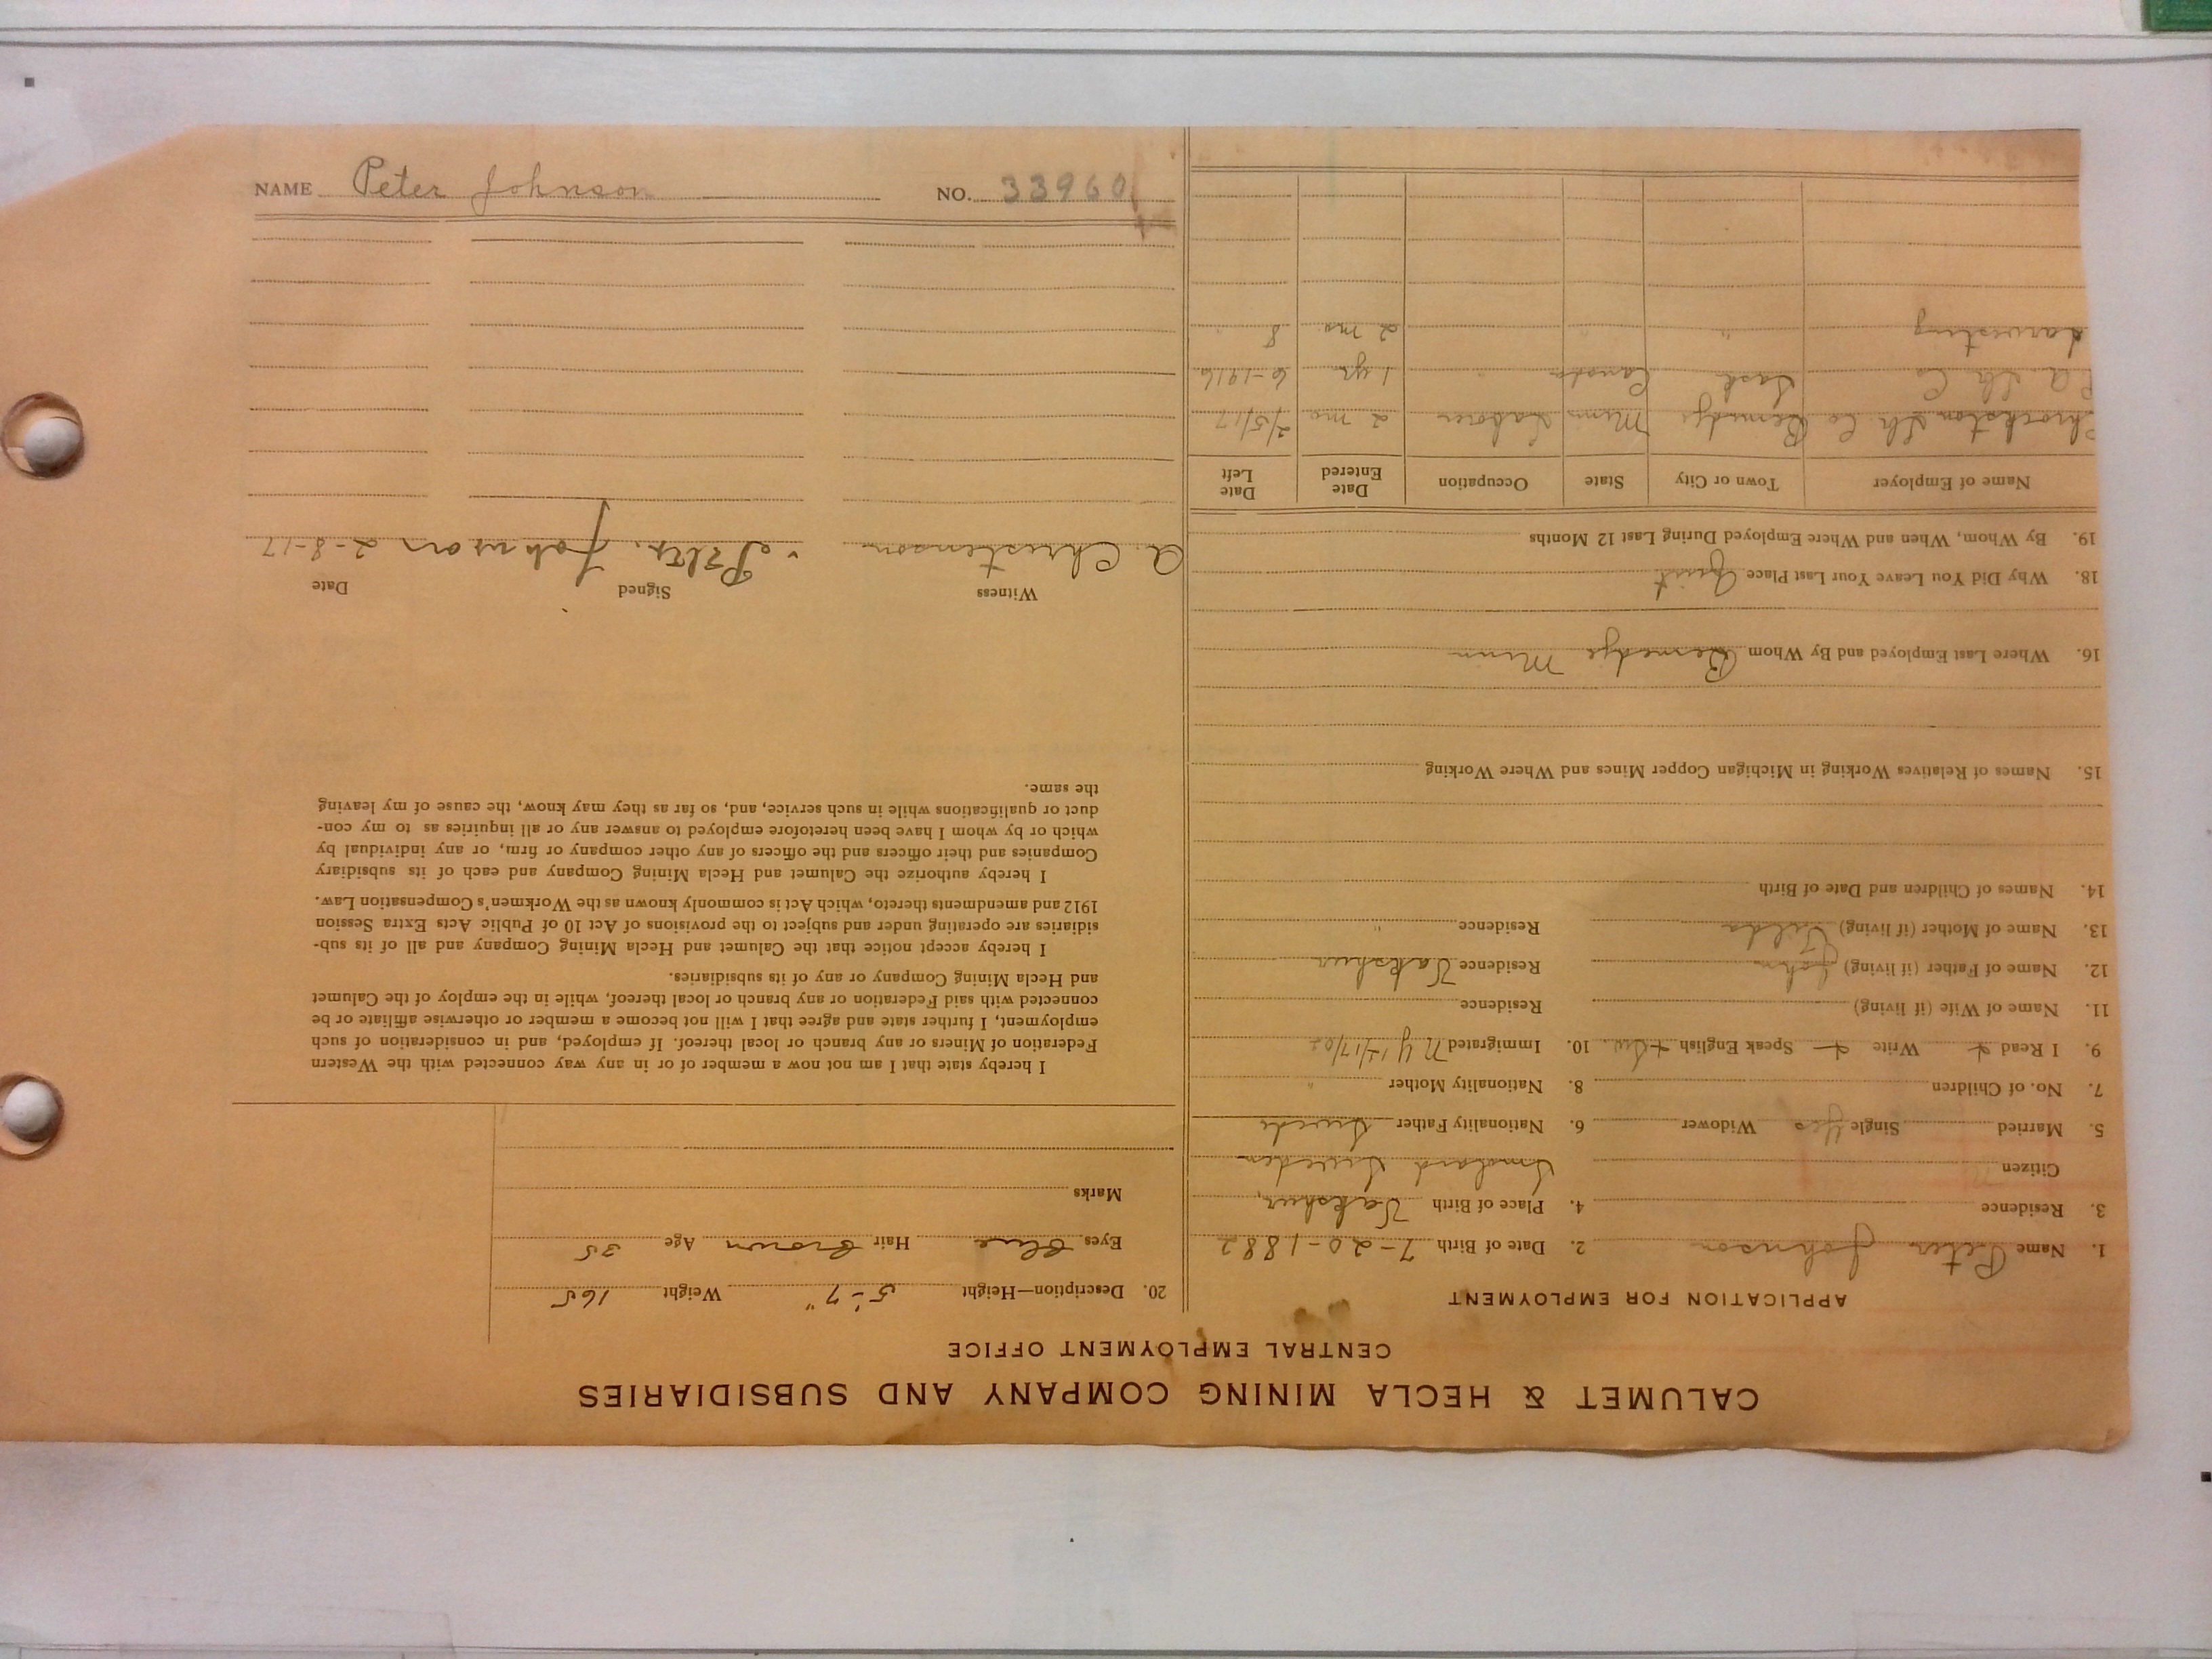 NAME Peter Johnson NO. 33960
CALUMET & HECLA MINING COMPANY AND SUBSIDIARIES
CENTRAL EMPLOYMENT OFFICE
APPLICATION FOR EMPLOYMENT
1. Name Peter Johnson 2. Date of Birth 7-20-1882
3. Residence 4. Place of Birth
Citizen Sweden
5. Married Single Yes Widower 6. Nationality Father Swede
7. No. of Children 8. Nationality Mother "
9. I Read + Write + Speak English + Sw. 10. Immigrated N Y
11. Name of Wife (if living) Residence
12. Name of Father (if living) John Residence
13. Name of Mother (if living) Residence "
14. Names of Children and Date of Birth
15. Names of Relatives Working in Michigan Copper Mines and Where Working
16. Where Last Employed and By Whom Bemedge Minn
18. Why Did You Leave Your Last Place Quit
19. By Whom, When and Where Employed During Last 12 Months
Name of Employer Town or City State Occupation Date Entered Date Left
Lbr Co Bemedge Minn Laborer 2 mo 2/5/17
Co Sask Canada " 1 yr 6-1916
Harvesting " " 2 mo 8 "
20. Description—Height 5'-7" Weight 165
Eyes Blue Hair Brown Age 35
Marks
I hereby state that I am not now a member of or in any way connected with the Western
Federation of Miners or any branch or local thereof. If employed, and in consideration of such
employment, I further state and agree that I will not become a member or otherwise affiliate or be
connected with said Federation or any branch or local thereof, while in the employ of the Calumet
and Hecla Mining Company or any of its subsidiaries.
I hereby accept notice that the Calumet and Hecla Mining Company and all of its sub-
sidiaries are operating under and subject to the provisions of Act 10 of Public Acts Extra Session
1912 and amendments thereto, which Act is commonly known as the Workmen's Compensation Law.
I hereby authorize the Calumet and Hecla Mining Company and each of its subsidiary
Companies and their officers and the officers of any other company or firm, or any individual by
which or by whom I have been heretofore employed to answer any or all inquiries as to my con-
duct or qualifications while in such service, and, so far as they may know, the cause of my leaving
the same.
Witness Signed Date
A. Christenson Peter Johnson 2-8-17